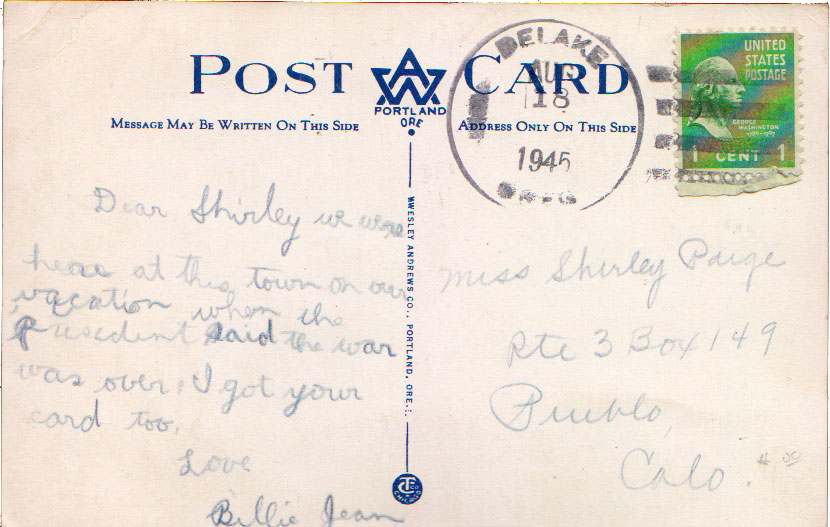 POST CARD
AW
PORTLAND
ORE
MESSAGE MAY BE WRITTEN ON THIS SIDE
ADDRESS ONLY ON THIS SIDE
DELAKE
AUG
18
1945
OREG
UNITED
STATES
POSTAGE
GEORGE
WASHINGTON
1789-1797
1 CENT 1
Dear Shirley we were
here at this town on our
vacation when the
Presedent said the war
was over, I got your
card too,
Love
Billie Jean
WESLEY ANDREWS CO., PORTLAND, ORE.
CT CO
CHICAGO
Miss Shirley Paige
Rte 3 Box 149
Pueblo,
Colo.